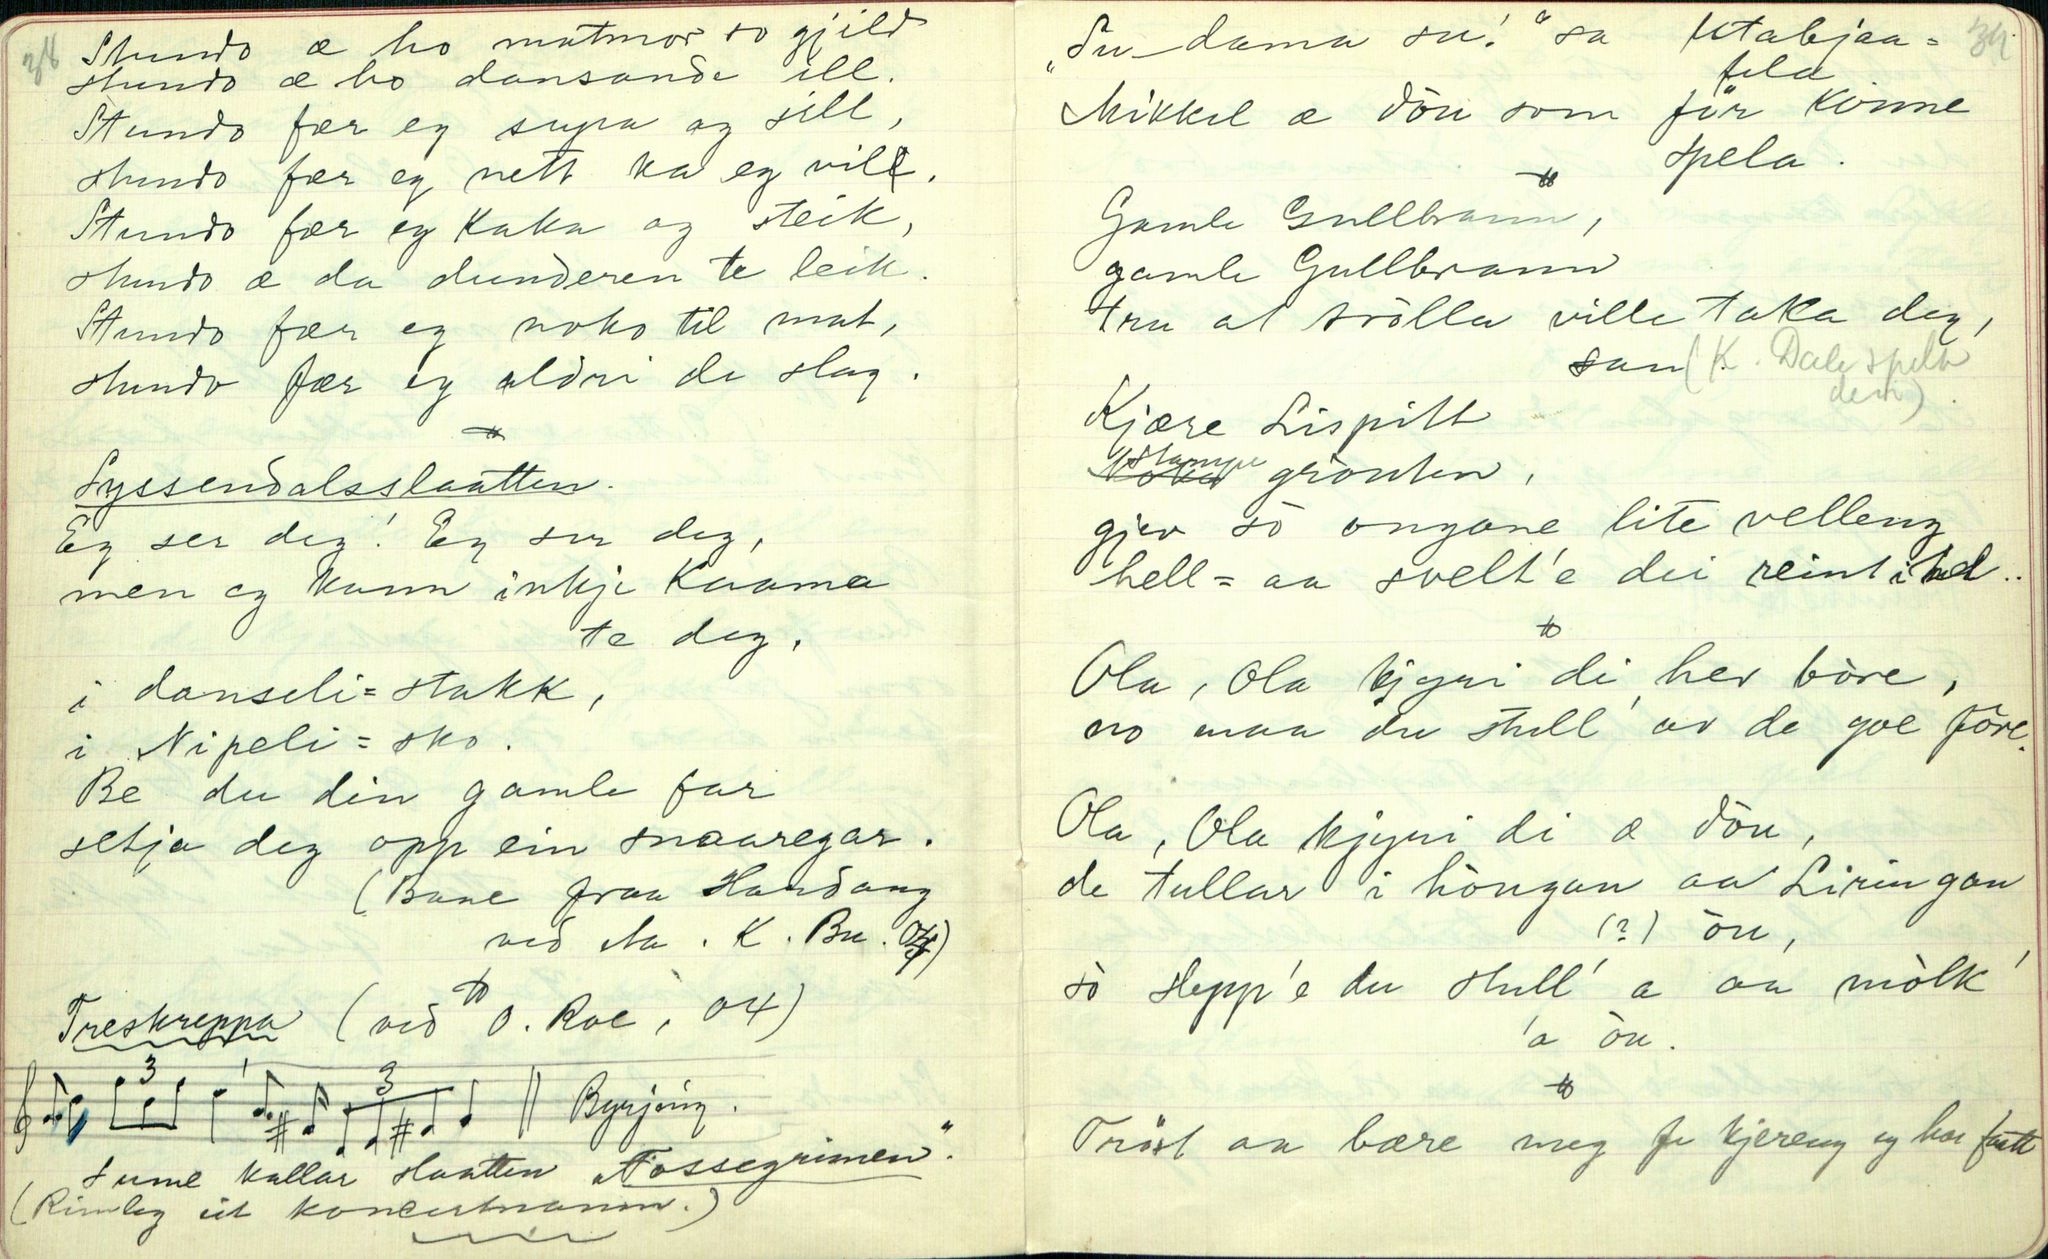 38
Stundo æ ho matmor so gjild
stundo æ ho dansande ill.
Stundo fær eg supa og sill,
stundo fær eg nett ka eg vill.
Stundo fær eg kaka og steik,
stundo æ da dunderen te leik.
Stundo fær eg noko til mat,
stundo fær eg aldri de slag.
Syssendalsslaatten.
Eg ser deg! Eg ser deg,
men eg kann inkje kaama
te deg,
i danseli=stakk,
i Nipeli=sko.
Be du din gamle far
setja deg opp ein snaaregar.
(Bane fraa Hardang
ved Aa. K. Bu. 04)
Treskreppa (ved O. Roe, 04)
3 3 Byrjing.
Sume kallar slaatten "Fossegrimen".
(Rimleg eit koncertnamn.)
39
"Su dama su!" sa Utabjaa=
feld
Mikkel æ dòu som fyr kunne
spela.
Gamle Gullbrann,
gamle Gullbrann
tru at tròlla ville taka deg,
san (K. Dale spela
den)
Kjære Lispitt
stampe
gròuten,
gjev sò ongane lite velleng
hell=aa svelt'e dei reint ihel..
Ola, Ola kjyri di hev bòre,
no maa du stell' av de goe fòre.
Ola, Ola kjyri di æ dòu,
de tullar i hòngan aa Liringan
(?) òu,
sò slepp'e du stell' a aa mòlk'
'a òu.
Trøst aa bære meg fe kjereng eg har faatt